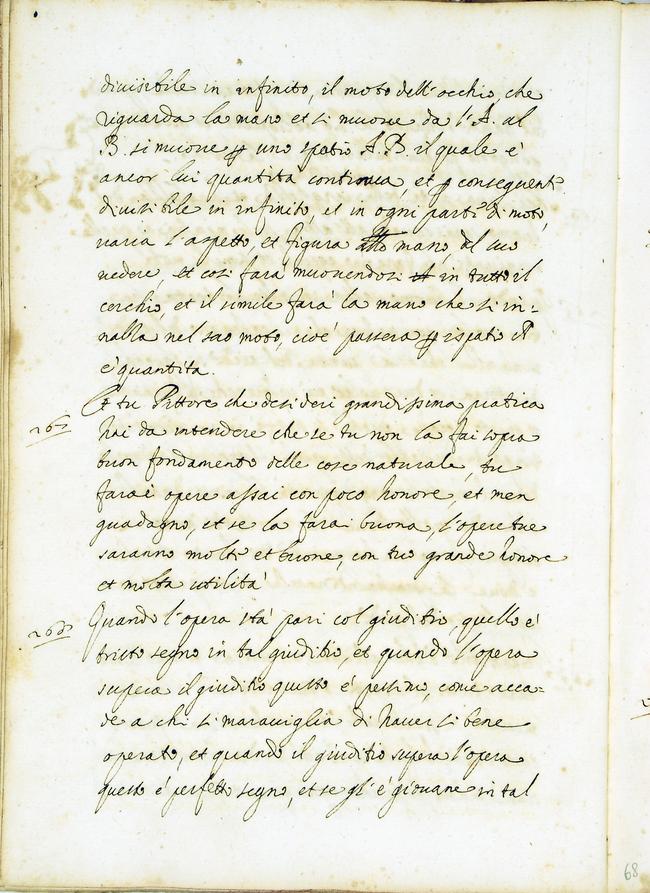 diuisibile in infinito, il moto dell'occhio, che
riguarda la mano et si muoue da l'A. al
B. si muoue p uno spatio A.B. il quale é
ancor lui quantita continua, et p conseguent.
diuisibile in infinito, et in ogni parte di moto,
uaria l'aspetto, et figura della mano, al suo
uedere, et cosi fara' muouendosi in tutto il
cerchio, et il simile fara' la mano che si in=
nalla nel suo moto, cioé passera p ispatio
é quantita.
Et tu Pittore che desideri grandissima pratica
267
hai da intendere che se tu non la fai sopra
buon fondamento delle cose naturale, tu
farai opere assai con poco honore, et men
guadagno, et se la farai buona, l'opere tue
saranno molte et buone, con tuo grande honore
et molta utilita'
Quando l'opera sta' pari col giuditio, quello é
268
tristo segno in tal giuditio, et quando l'opera
supera il giuditio questo é pessimo, come acca=
de a chi si marauiglia di hauer si bene
operato, et quando il giuditio supera l'opera
questo é perfetto segno, et se gl' é giouane in tal
68